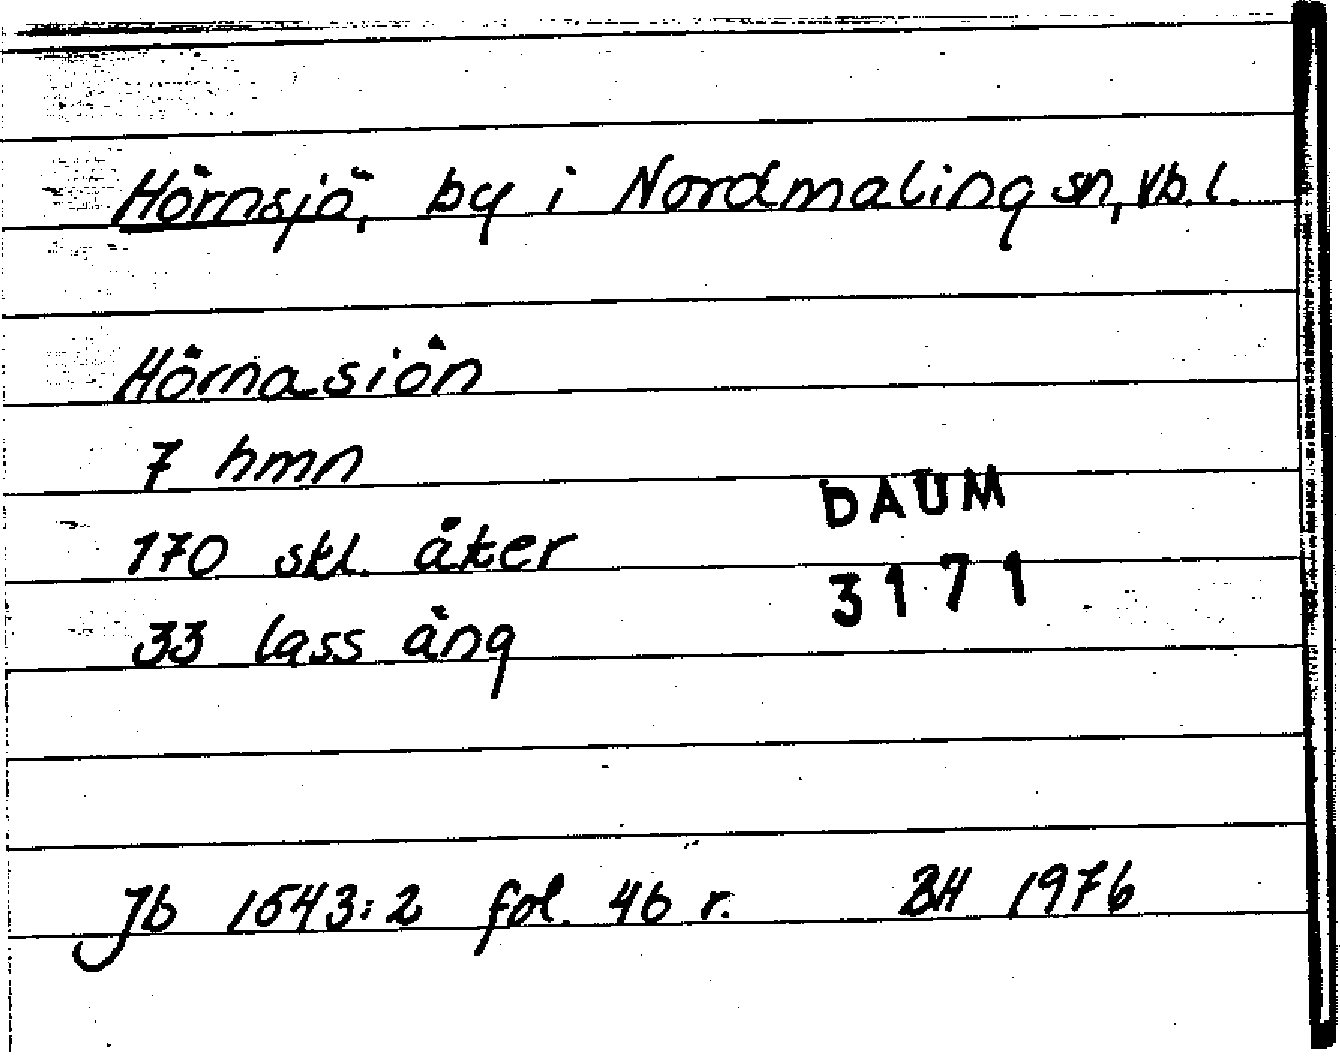 Hörnsjö, by i Nordmaling sn, Vb.l.
Hörnasiön
7 hmn
170 skl. åker
33 lass äng
DAUM
3171
Jb 1543:2 fol. 46 r. BH 1976